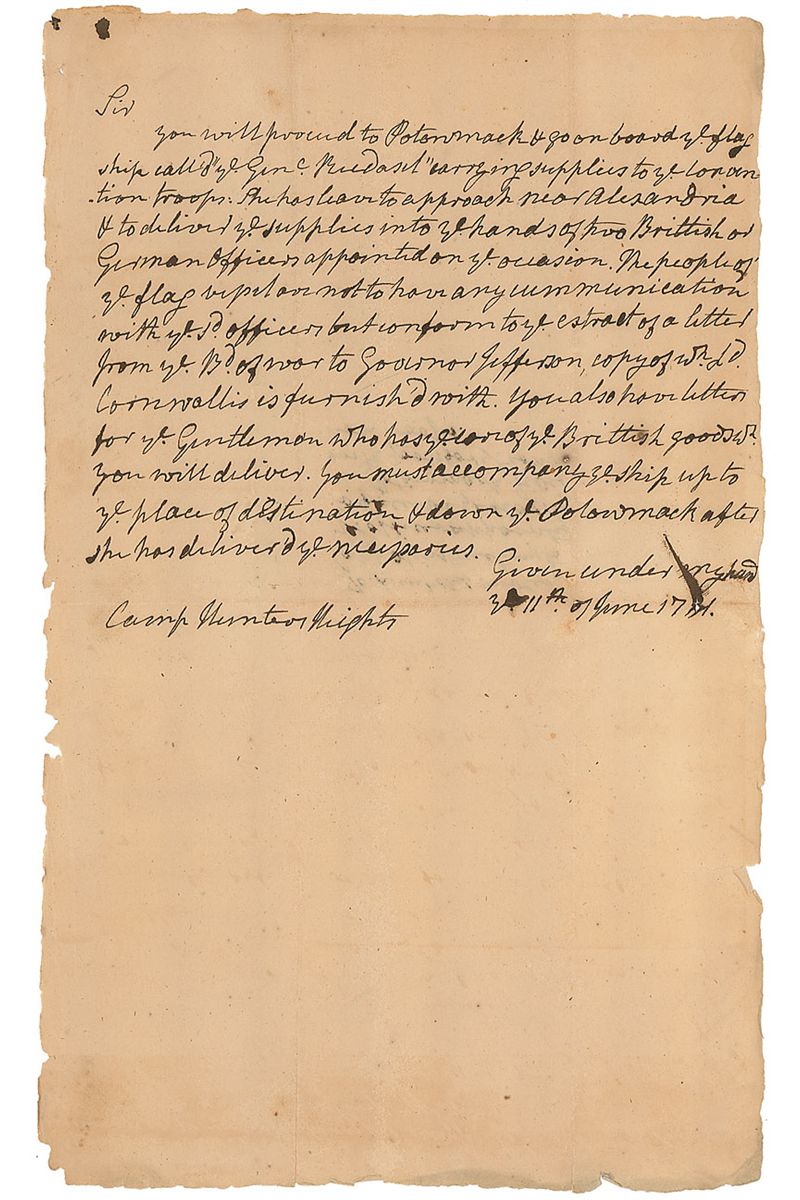 Sir
you will proceed to Potowmack & go on board ye. flag
ship call'd "ye. Genl. Riedasel" carrying supplies to ye Conven
-tion troops. She has leave to approach near Alexandria
& to deliver ye. supplies into ye hands of two Brittish or
German Officers appointed on ye. occasion. The people of
ye. flag vessel are not to have any cummunication
with ye. sd. officers but conform to ye extract of a letter
from ye. Bd. of war to Governor Jefferson, copy of wh. Ld.
Cornwallis is furnish'd with. You also have letters
for ye. Gentleman who has ye. care of ye. Brittish goods wh.
you will deliver. You must accompany ye. ship up to
ye. place of destination & down ye. Potowmack after
she has deliver'd ye. necessaries.
Given under my hand
ye 11th. of June 1781.
Camp Hunters Heights